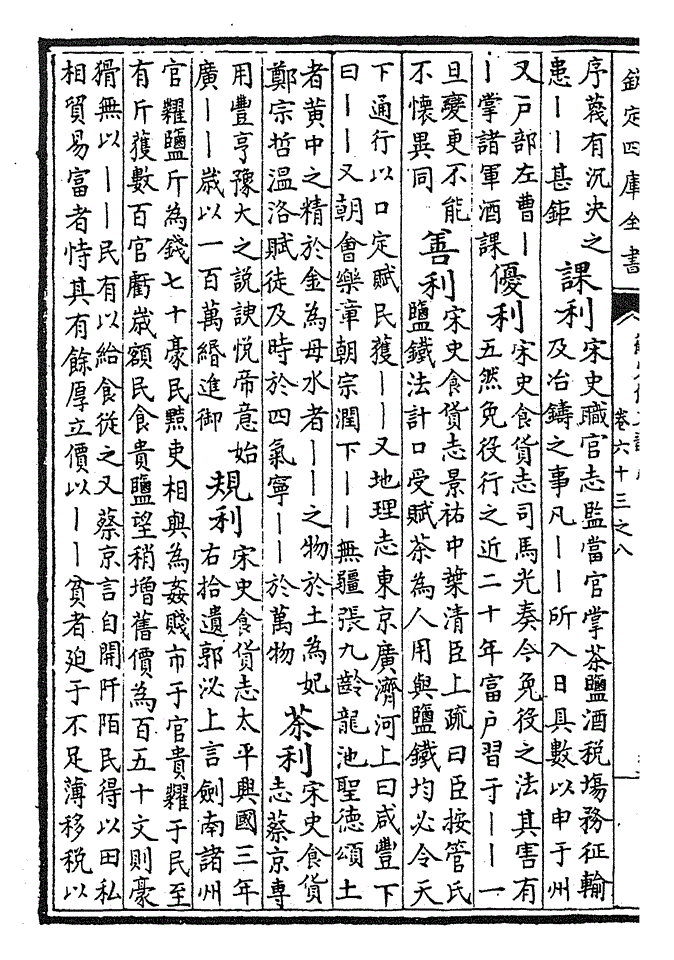 欽定四庫全書
卷六十三之八
序義有沉泱之
患——甚鉅
課利
宋史職官志監當官掌茶鹽酒税塲務征輸
及冶鑄之事凡——所入日具數以申于州
又戶部左曹—
—掌諸軍酒課
優利
宋史食貨志司馬光奏今免役之法其害有
五然免役行之近二十年富户習于——一
旦變更不能
不懷異同
善利
宋史食貨志景祐中葉清臣上疏曰臣按管氏
鹽鐵法計口受賦茶為人用與鹽鐵均必令天
下通行以口定賦民獲——又地理志東京廣濟河上曰咸豐下
曰——又朝會樂章朝宗潤下——無疆張九齡龍池聖德頌土
者黄中之精於金為母水者——之物於土為妃
鄭宗哲温洛賦徒及時於四氣寧——於萬物
茶利
宋史食貨
志蔡京專
用豐亨豫大之說諛悦帝意始
廣——歲以一百萬緡進御
規利
宋史食貨志太平興國三年
右拾遺郭泌上言劍南諸州
官糶鹽斤為錢七十豪民黠吏相與為姦賤市于官貴糶于民至
有斤獲數百官虧歲額民食貴鹽望稍增舊價為百五十文則豪
猾無以——民有以給食從之又蔡京言自開阡陌民得以田私
相貿易富者恃其有餘厚立價以——貧者廹于不足薄移税以